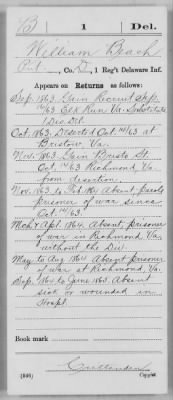 B 1 Del.
William Beach
Pvt., Co. D, 1 Reg't Delaware Inf.
Appears on Returns as follows:
Sep. 1863. Gain Recruit Sep.
/63 Elk Run Va. Substitute
1 Dis. Del.
Oct. 1863. Deserted Oct 14/63 at
Bristow, Va.
Nov. 1863. Gain Bristo St.
Oct 14/63 Richmond, Va.
from desertion.
Nov. 1863 to Feb. 1864 Absent, paroled
prisoner of war since
Oct. 14/63.
Mch & Apl. 1864. Absent, prisoner
of war in Richmond Va.
without the Div.
May to Aug 1864 Absent prisoner
of war at Richmond, Va.
Sep. 1864 to June 1865. Absent
sick or wounded in
Hospt.
Book mark
(546) Copyist.